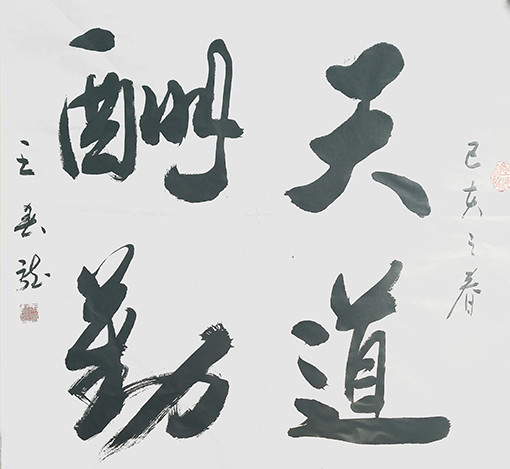 己亥之春
天道
酬勤
王春龙